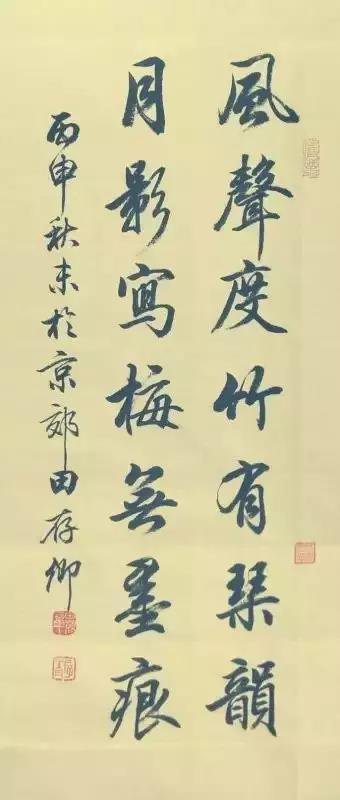 風聲度竹有琹韻
月影寫梅無墨痕
丙申秋末於京郊田存卿